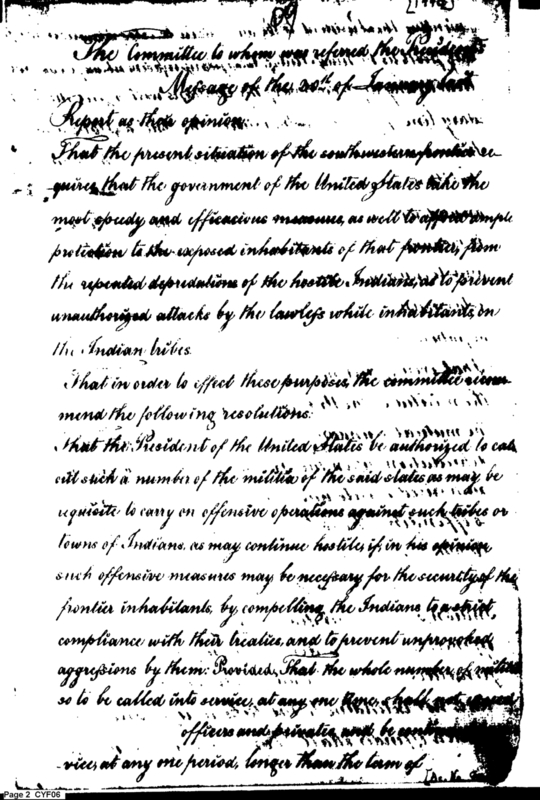 The Committee to whom was referred the President's
Message of the 20th. of January last
Report as their opinion
That the present situation of the southwestern frontier re-
quires, that the government of the United States take the
most speedy and efficacious measures, as well to afford ample
protection to the exposed inhabitants of that frontier, from
the repeated depredations of the hostile Indians, as to prevent
unauthorized attacks by the lawless white inhabitants, on
the Indian tribes.
That in order to effect these purposes, the committee recom-
mend the following resolutions.
That the President of the United States be authorized to call
out such a number of the militia of the said states as may be
requisite to carry on offensive operations against such tribes or
towns of Indians, as may continue hostile, if, in his opinion
such offensive measures may be necessary for the security of the
frontier inhabitants, by compelling the Indians to a strict
compliance with their treaties, and to prevent unprovoked
aggressions by them: Provided, That the whole number of militia
so to be called into service, at any one time, shall not exceed
officers and privates, and be
-vice, at any one period, longer than the term of
Page 2 CYF06